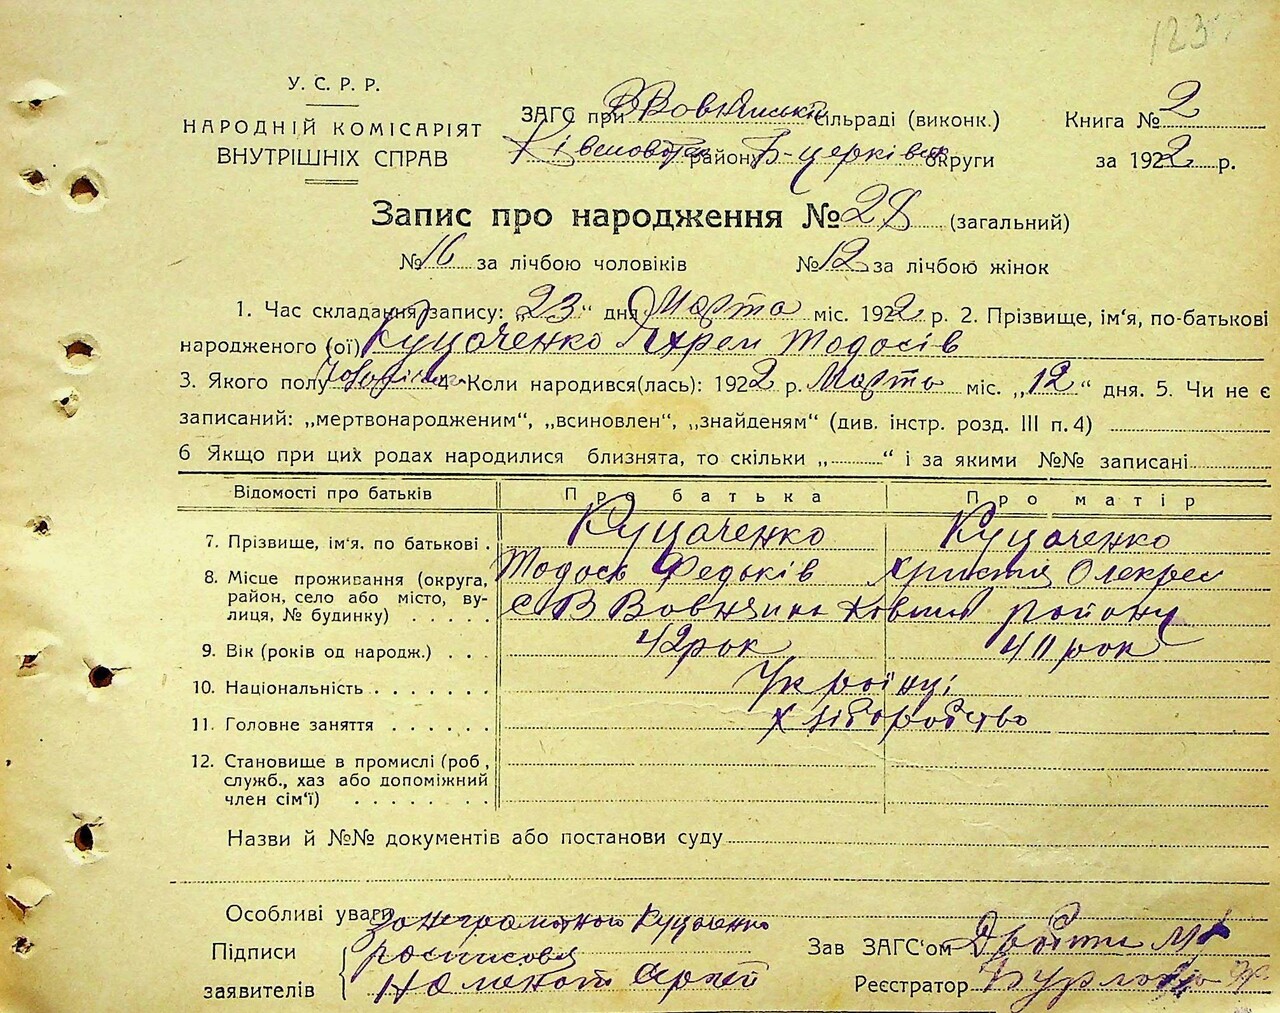 123
У. С. Р. Р.
НАРОДНІЙ КОМІСАРІЯТ
ВНУТРІШНІХ СПРАВ
ЗАГС при сільраді (виконк.)
району Б-церківськ округи
Книга № 2
за 1922 р.
Запис про народження № 28 (загальний)
№ 16 за лічбою чоловіків № 12 за лічбою жінок
1. Час складання запису: „23“ дня Марта міс. 1922 р. 2. Прізвище, ім'я, по-батькові
народженого (ої) Куцаченко Яхрем Тодосів
3. Якого полу 4. Коли народився(лась): 1922 р. Марта міс. „12“ дня. 5. Чи не є
записаний: „мертвонародженим“, „всиновлен“, „знайденям“ (див. інстр. розд. III п. 4)
6 Якщо при цих родах народилися близнята, то скільки „ “ і за якими №№ записані
Відомості про батьків Про батька Про матір
7. Прізвище, ім'я. по батькові . Куцаченко Куцаченко
8. Місце проживання (округа, Тодось Федьків Христя
район, село або місто, ву- с В району
лиця, № будинку) . . . . .
9. Вік (років од народж.) . . . 42 рок 40 рок
10. Національність . . . . . . . Українці
11. Головне заняття . . . . . . Хліборобство
12. Становище в промислі (роб,
служб., хаз або допоміжний
член сім'ї) . . . . . . . .
Назви й №№ документів або постанови суду
Особливі уваги За неграмотного Куцаченко
Підписи росписовся
заявителів Сергей
Зав ЗАГС'ом
Реєстратор